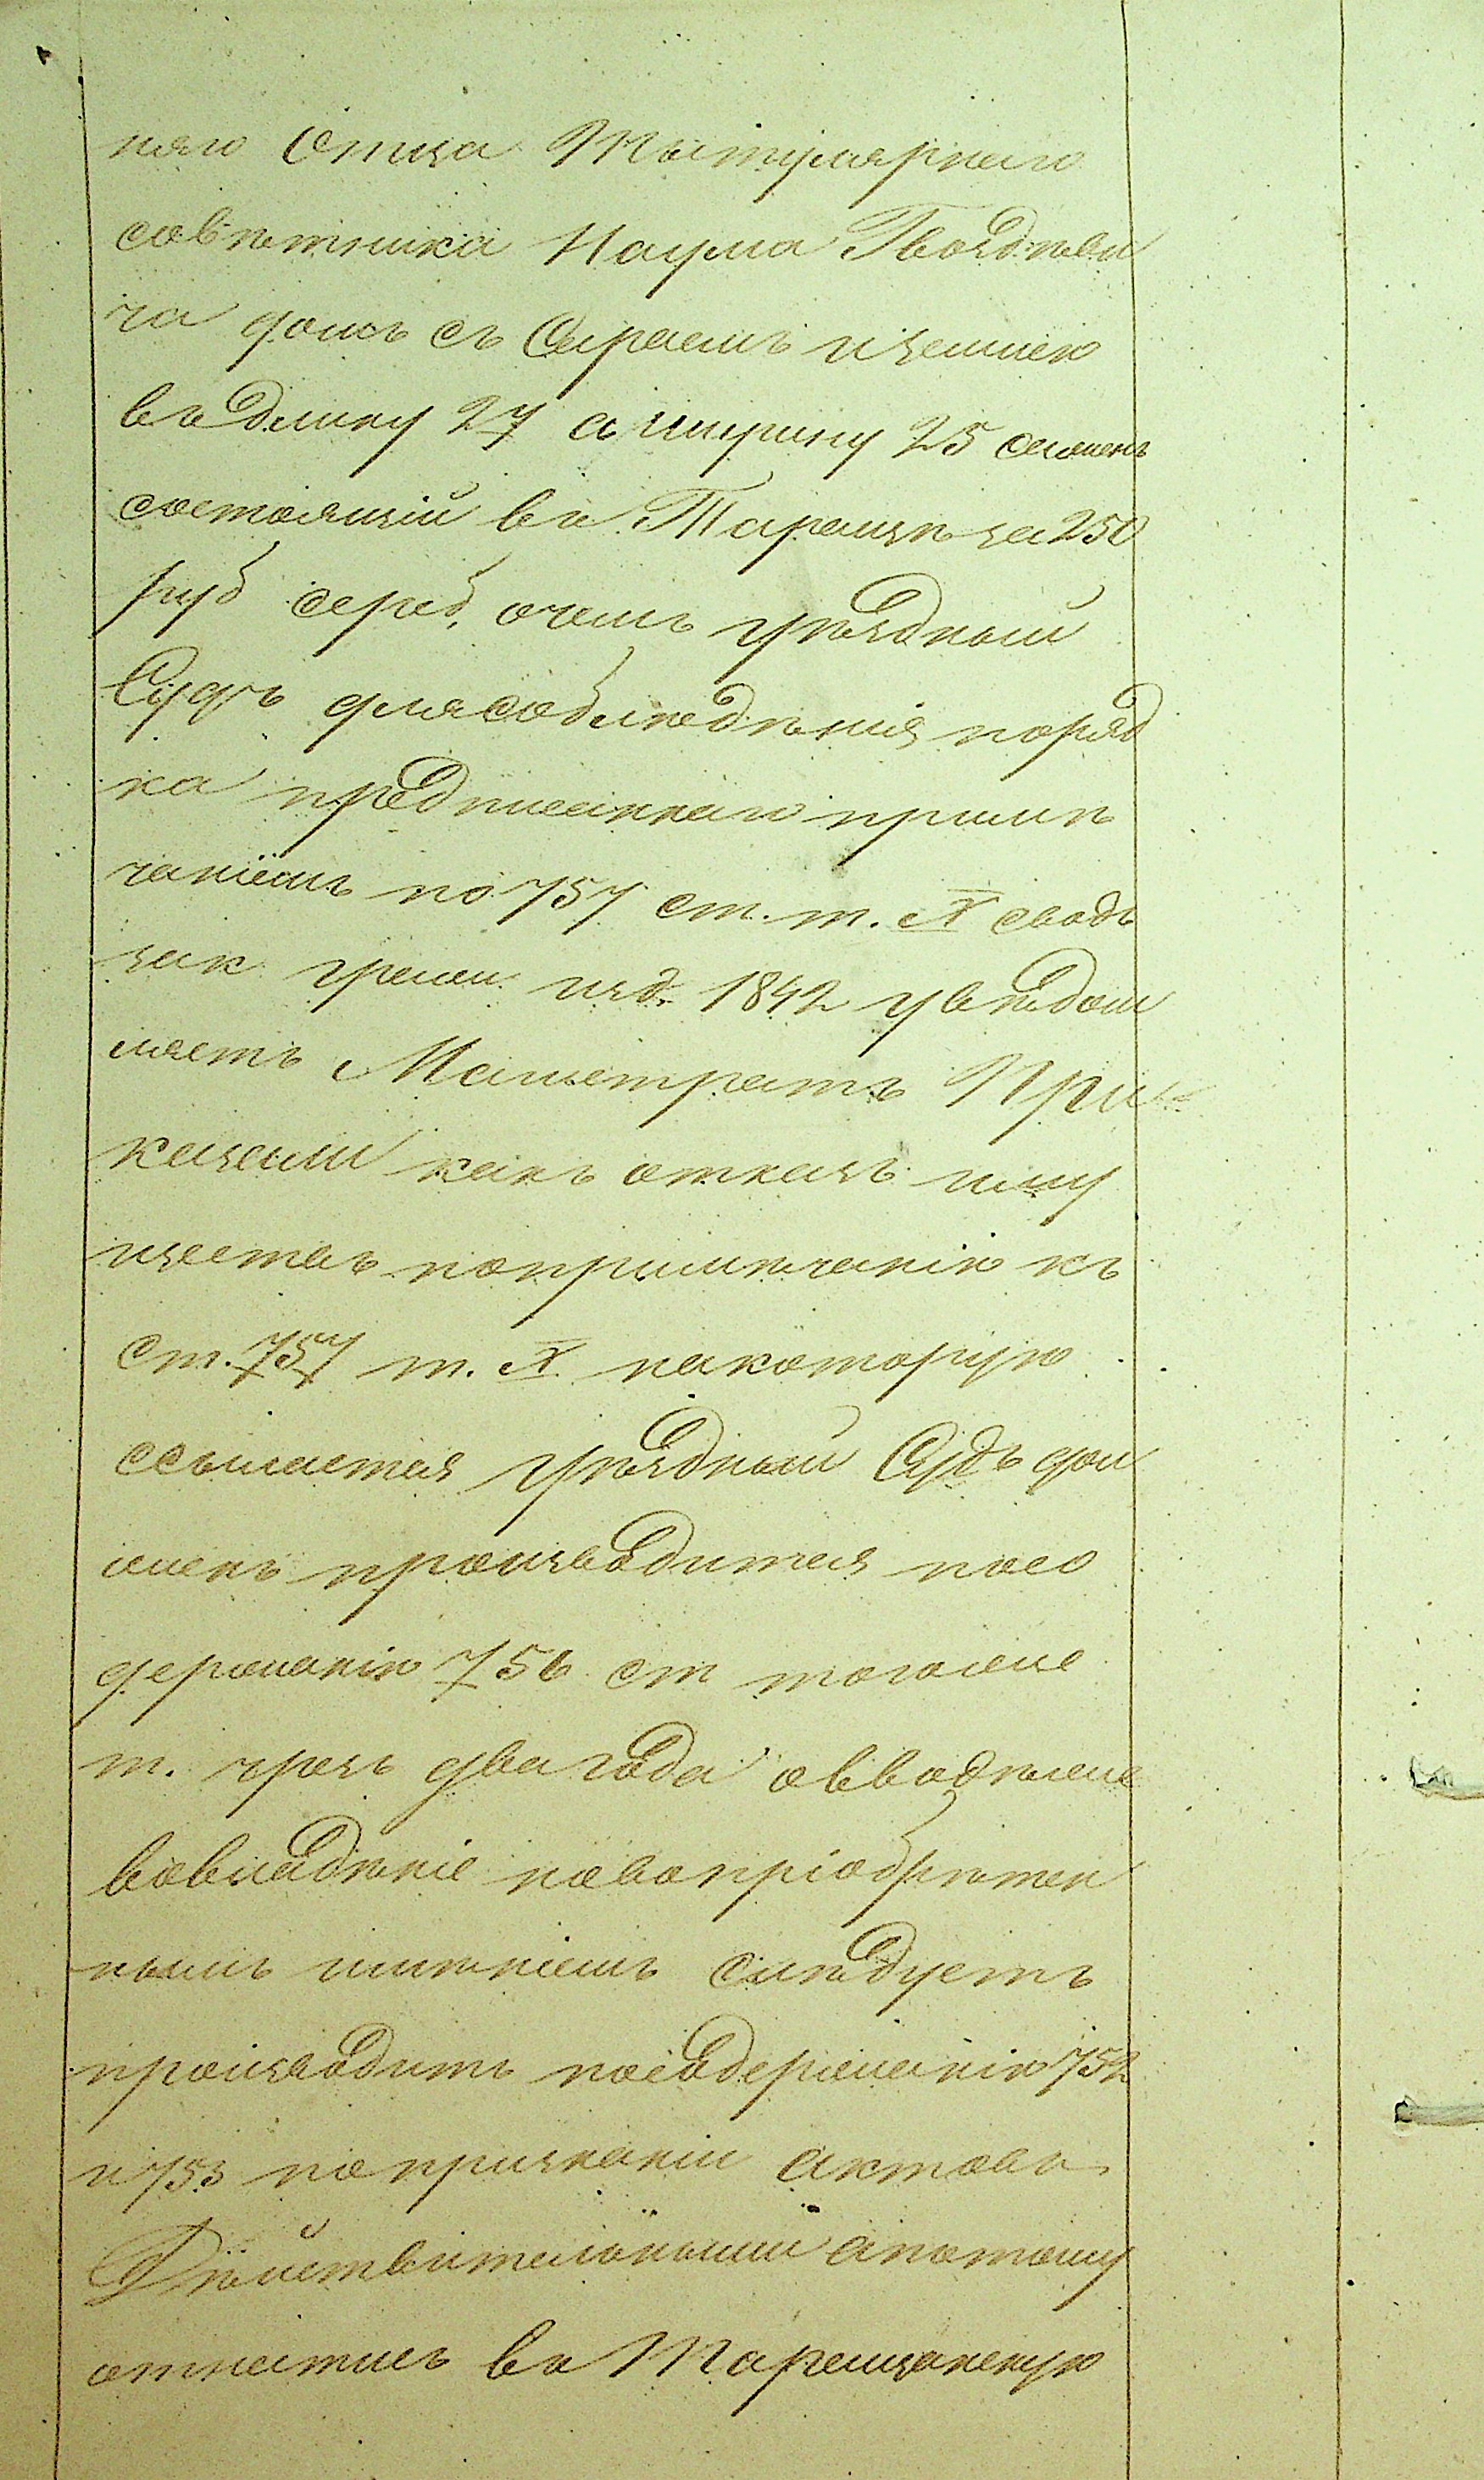 няго Отца Титулярнаго
совѣтника Наума Гвоздѣви
ча домъ съ Сараемъ и землею
въ длину 27 а ширину 25 сажень
состоящій въ Таращѣ за 250
руб сереб, о чемъ уѣздный
Судъ для соблюдѣнія поряд
ка предписаннаго примѣ
чаніемъ по 757 ст. т. X свода
зак гражд. изд. 1842 увѣдом
ляетъ Магистратъ При
казали какъ отказъ иму
ществъ по примѣчанію къ
ст. 757 т. X на которую
ссылается уѣздный Судъ дол
женъ производится по со
держанію 756 ст тогоже
т. чрезъ два года о вводѣже
во владѣніе новопріобрѣтен
нымъ имѣніемъ слѣдуетъ
производить по содержанію 752
и 753 по признаніи актовъ
Дѣйствительными а потому
отнестись въ Таращанскую